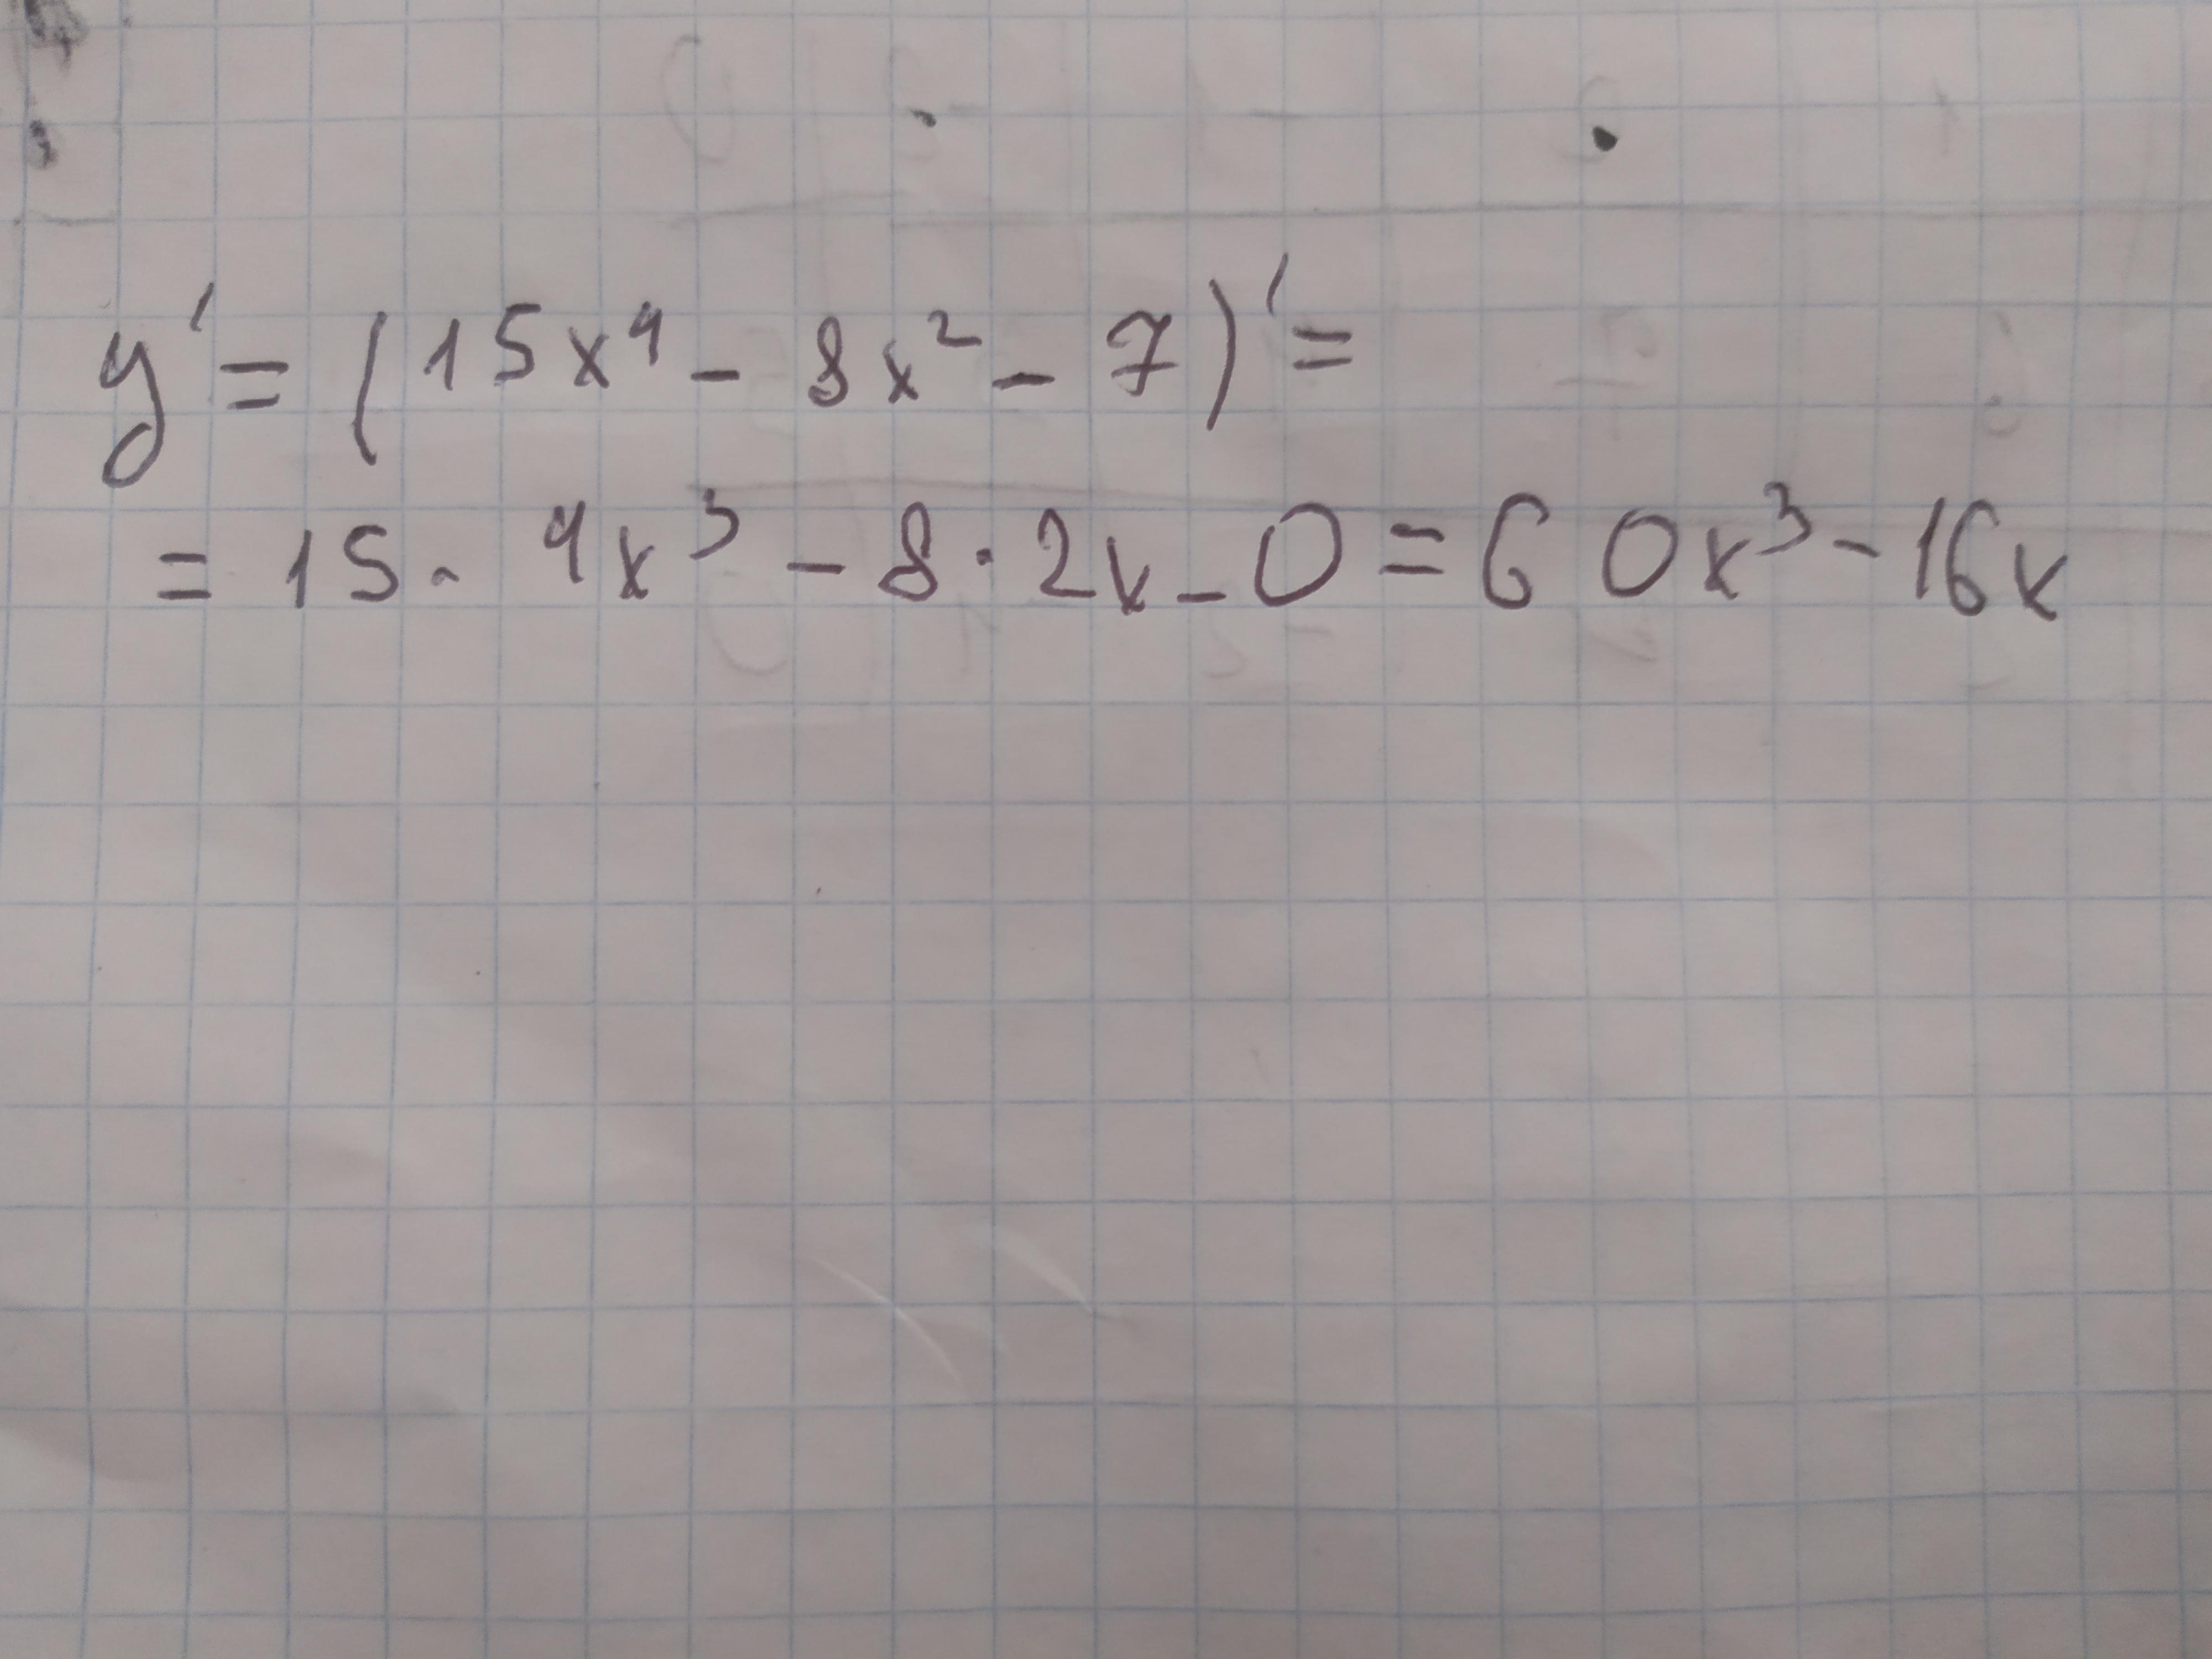 y' = (15x⁴ - 8x² - 7)' =
= 15 · 4x³ - 8 · 2x - 0 = 60x³ - 16x